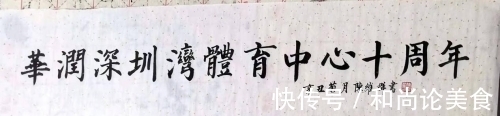 華潤深圳灣體育中心十周年
辛丑 月陳維 書
快传号/和尚论美食